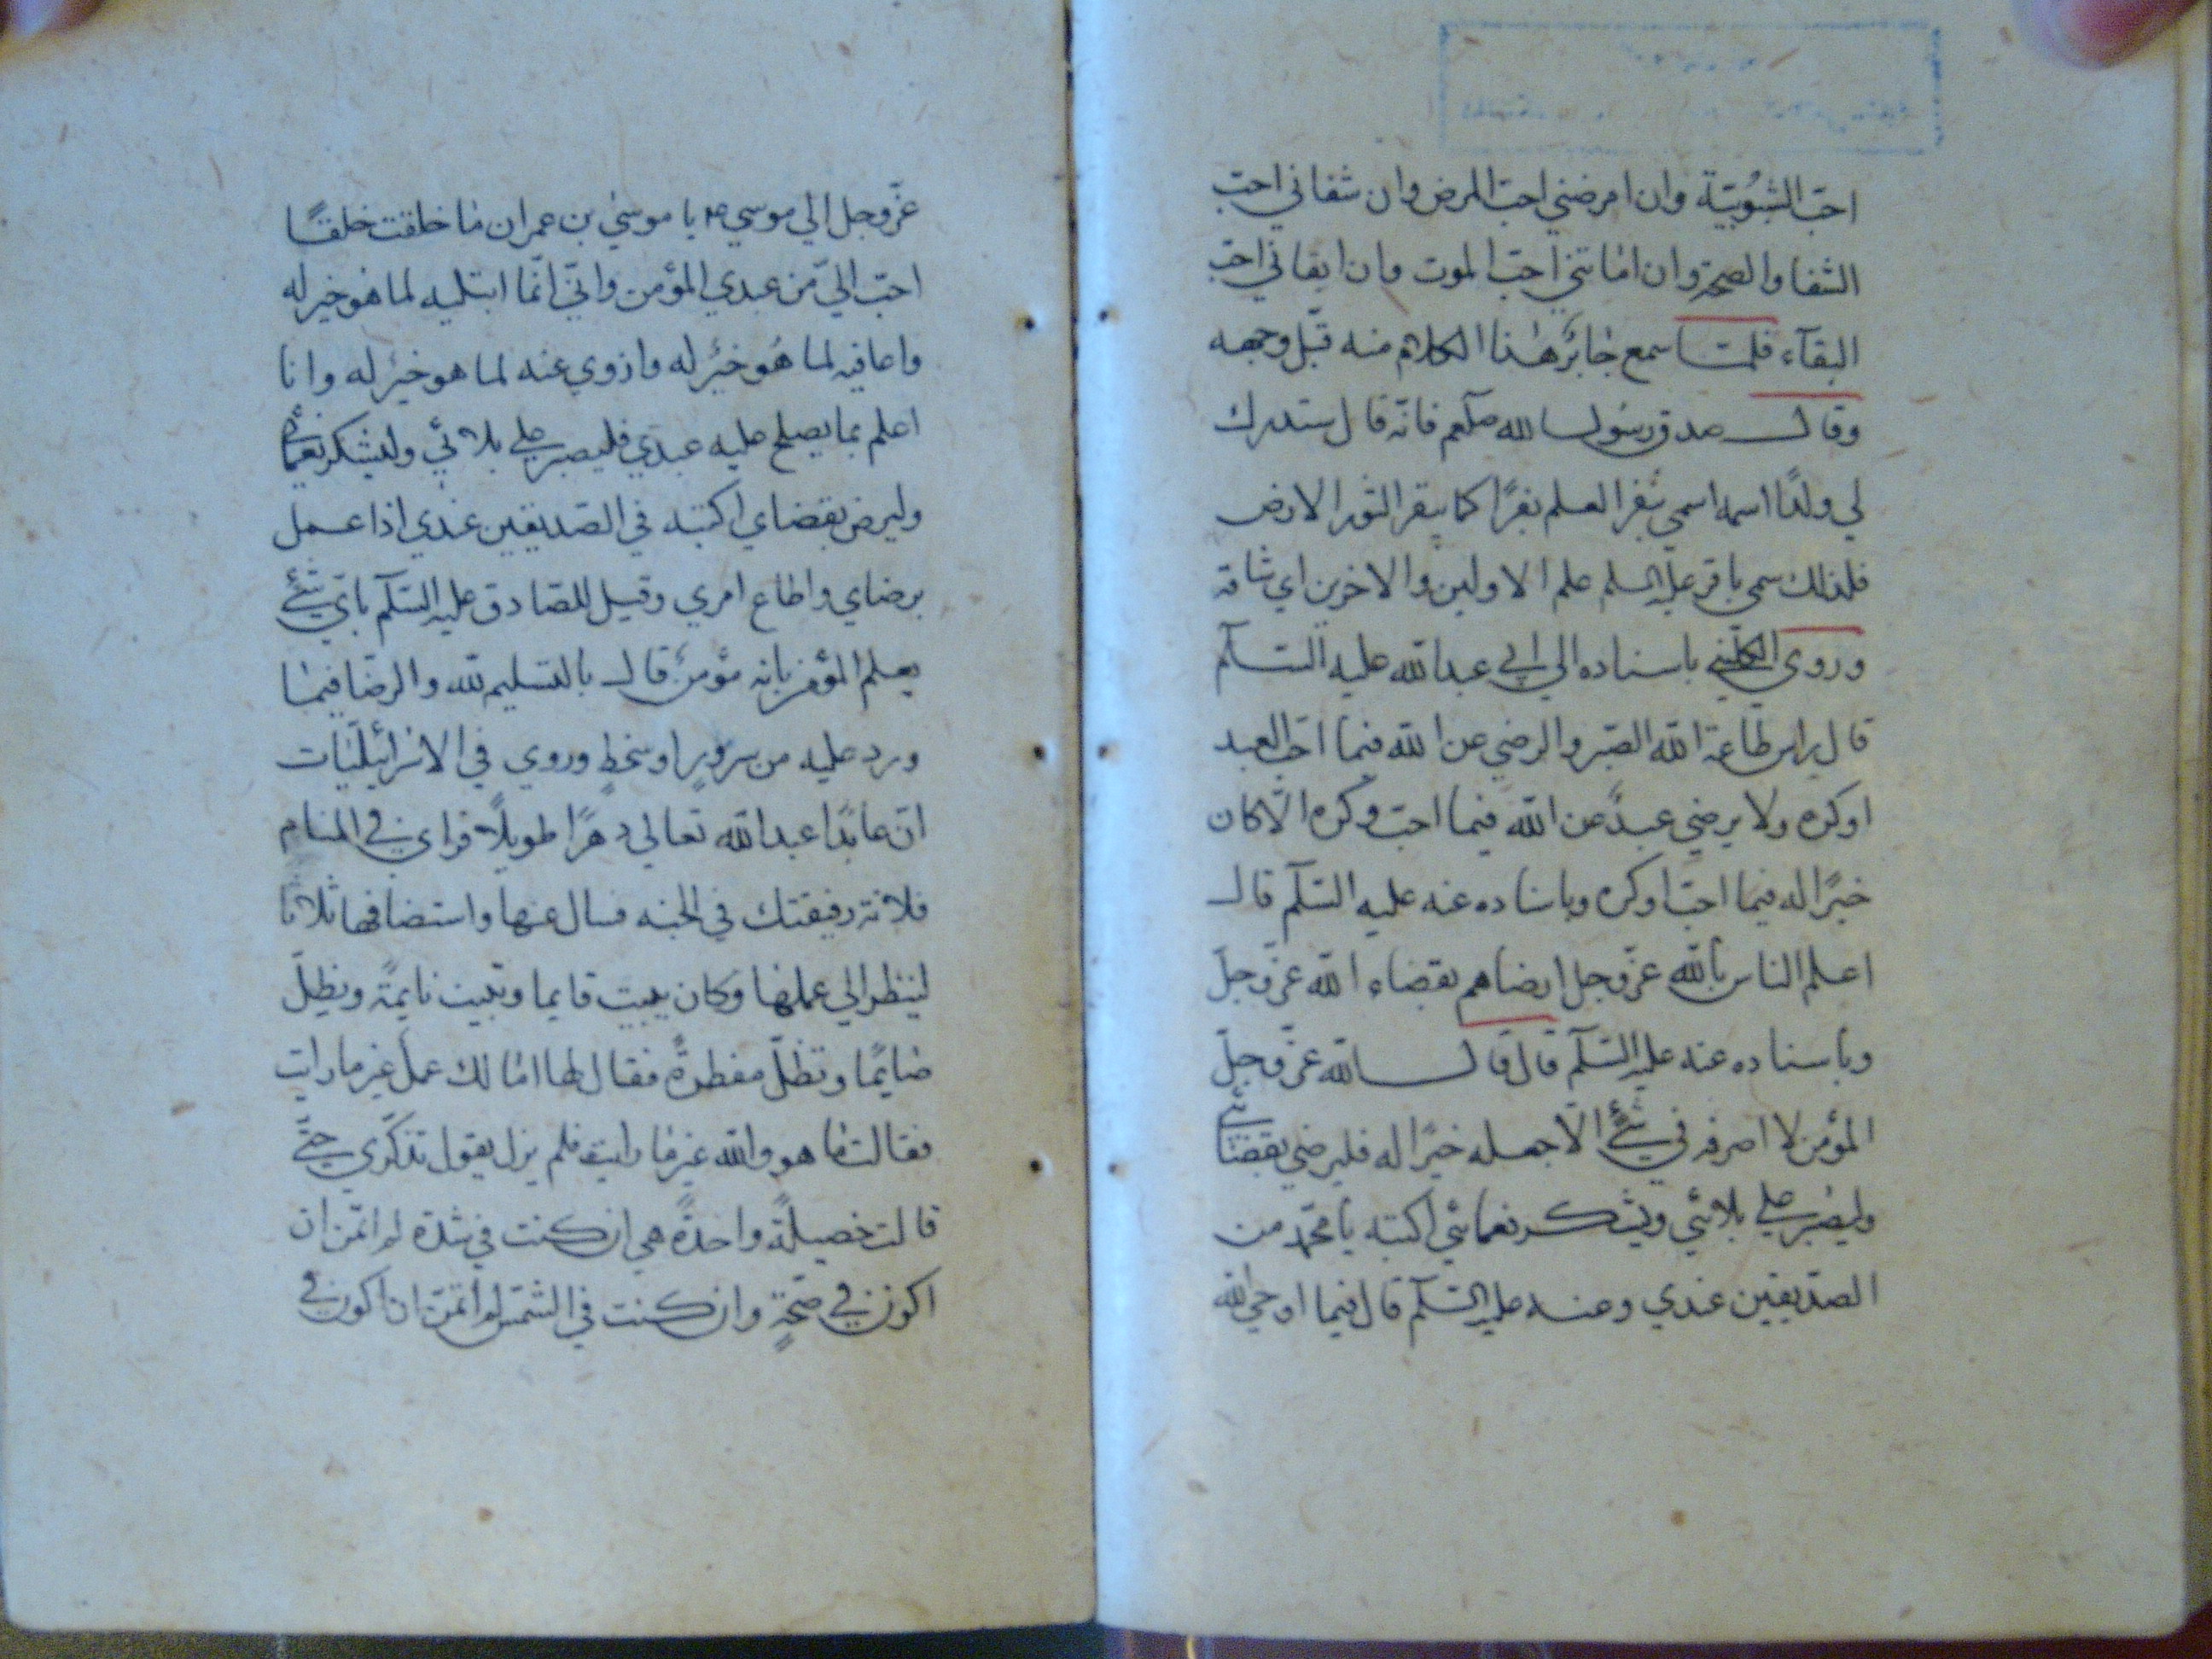 احبّ الشبُوبيّة وان امرضني احبّ المرض وان شفاني احبّ
الشفا والصحة وان اماتني احبّ الموت وان ابقاني احبّ
البقآء فلمّا سمع جابرٌ هذا الكلام منه قبّل وجهه
وقال صدق رسول الله صلعم فانّه قال ستدرك
لي ولدًا اسمه اسمي يبقر العلم بقرًا كما يبقر الثور الارض
فلذلك سمي باقر عليه السلم علم الاولين والاخرين اي شاقه
وروي الكليني باسناده الي ابي عبدالله عليه السّلم
قال راس طاعة الله الصّبر والرضي عن الله فيما احبّ العبد
اوكره ولا يرضي عبدٌ عن الله فيما احبّ وكره الّا كان
خيرًا له فيما احبّ اوكره وباسناده عنه عليه السّلم قال
اعلم الناس بالله عزّوجل ارضاهم بقضاء الله عزّوجلّ
وباسناده عنه عليه السّلم قال قال الله عزّوجلّ
المؤمن لا اصرفه في شئ الّا جعله خيرًا له فليرضي بقضائي
وليصبر علي بلائي ويشكر نعمائي اكتبه يا محمّد من
الصدّيقين عندي وعنه عليه السّلم قال فيما اوحي الله
عزّوجل الي موسي عم يا موسي بن عمران ما خلقت خلقًا
احبّ اليّ من عبدي المؤمن وانّي انّما ابتليه لما هو خير له
واعافيه لما هُو خيرٌ له وازوي عنه لما هو خيرٌ له وانا
اعلم بما يصلح عليه عبدي فليصبر علي بلائي وليشكر نعمائي
وليرض بقضاي اكتبه في الصّديقين عندي اذا عمل
برضاي واطاع امري وقيل للصّادق عليه السّلم بايّ شئ
يعلم المؤمن بانه مؤمنٌ قال بالتسليم لله والرضا فيما
ورد عليه من سرورٍ اوسخطٍ وروي في الاسرائيليّات
انّ عابدًا عبدالله تعالي دهرًا طويلًا فراي في المنام
فلانة رفيقتك في الجنه فسال عنها واستضافها ثلاثا
لينظر الي عملها وكان يبيت قايما وتبيت نايمة ويظلّ
صايمًا وتظلّ مفطرةً فقال لها اما لك عمل غير ما رايت
فقالت ما هو والله غير ما رايت فلم يزل يقول تذكّري حتّي
قالت خصيلةً واحدةً هي ان كنت في شدّة لم اتمنّ ان
اكون في صحّةٍ وان كنت في الشمس لم اتمنّ ان اكون في